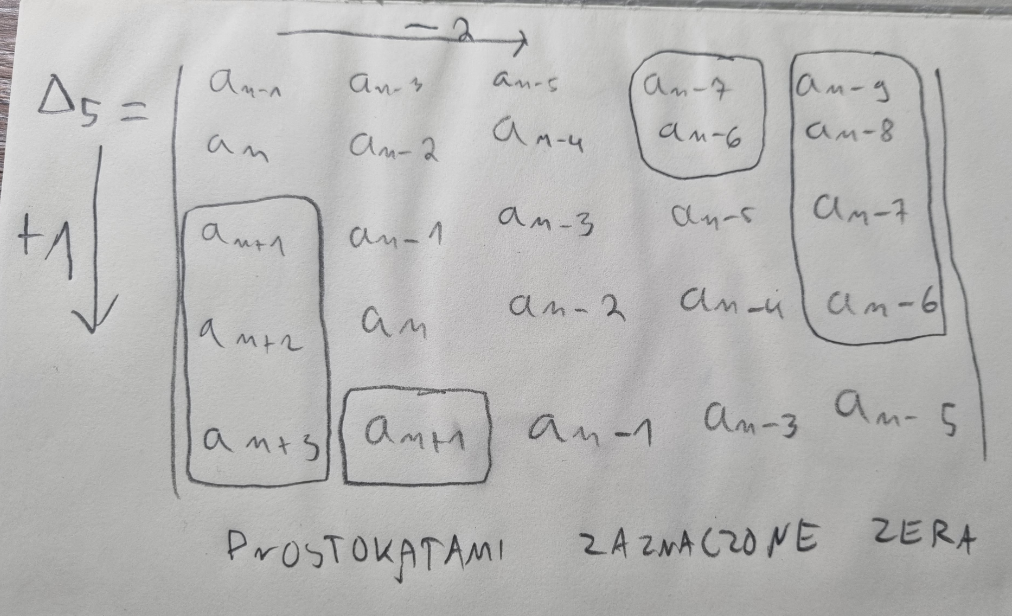 − 2
Δ₅ = | aₙ₋₁ aₙ₋₃ aₙ₋₅ aₙ₋₇ aₙ₋₉ |
aₙ aₙ₋₂ aₙ₋₄ aₙ₋₆ aₙ₋₈
+1 aₙ₊₁ aₙ₋₁ aₙ₋₃ aₙ₋₅ aₙ₋₇
aₙ₊₂ aₙ aₙ₋₂ aₙ₋₄ aₙ₋₆
aₙ₊₃ aₙ₊₁ aₙ₋₁ aₙ₋₃ aₙ₋₅
PROSTOKĄTAMI ZAZNACZONE ZERA